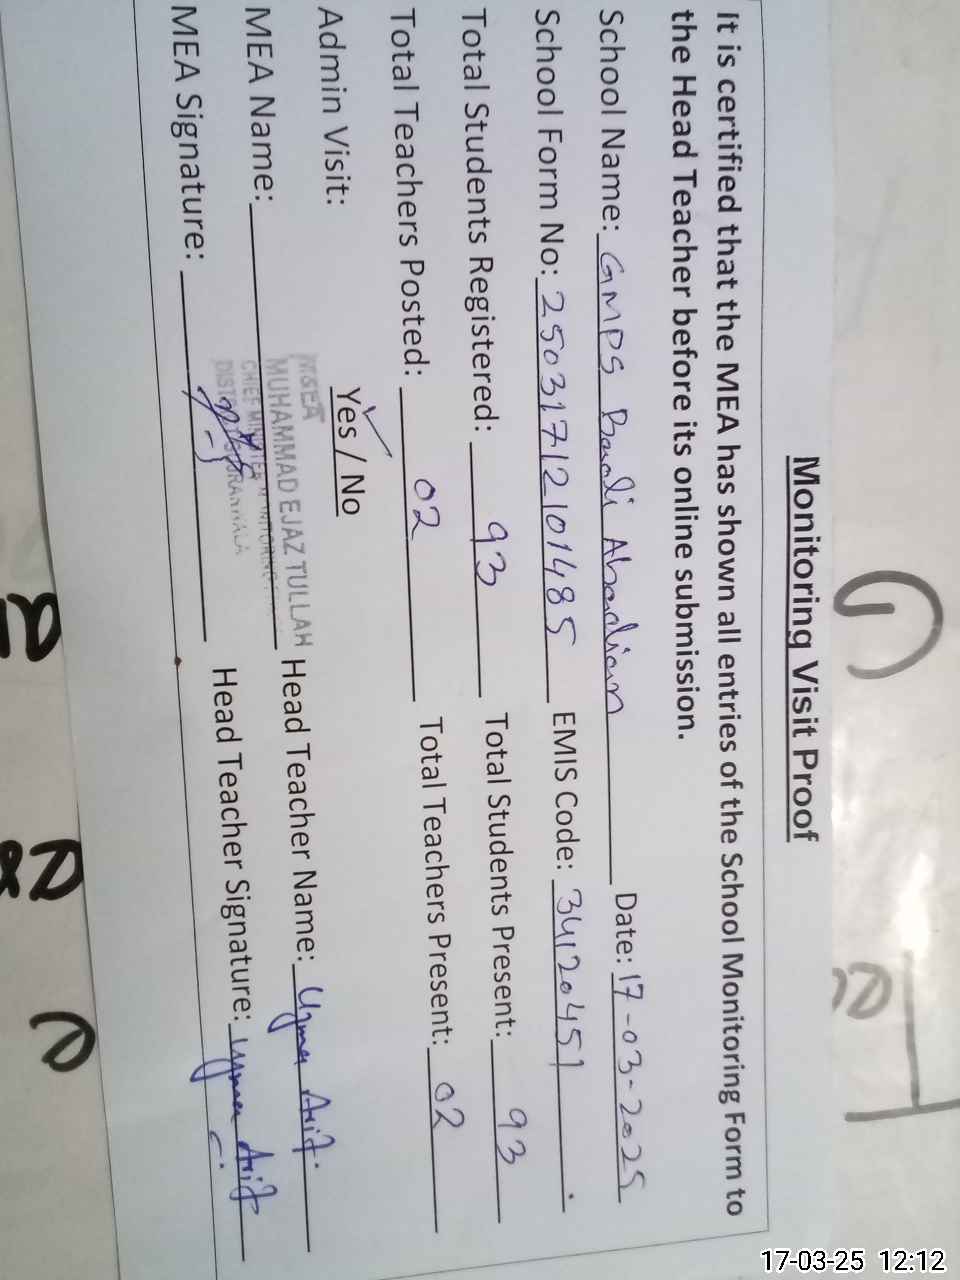 Monitoring Visit Proof
It is certified that the MEA has shown all entries of the School Monitoring Form to
the Head Teacher before its online submission.
School Name: GMPS Baoli Abadian Date: 17-03-2025
School Form No: 25031712101485 EMIS Code: 34120451
Total Students Registered: 93 Total Students Present: 93
Total Teachers Posted: 02 Total Teachers Present: 02
Admin Visit: Yes / No
MEA Name: MUHAMMAD EJAZ TULLAH Head Teacher Name: Uzma Arif
MEA Signature: Head Teacher Signature: Uzma Arif
17-03-25 12:12